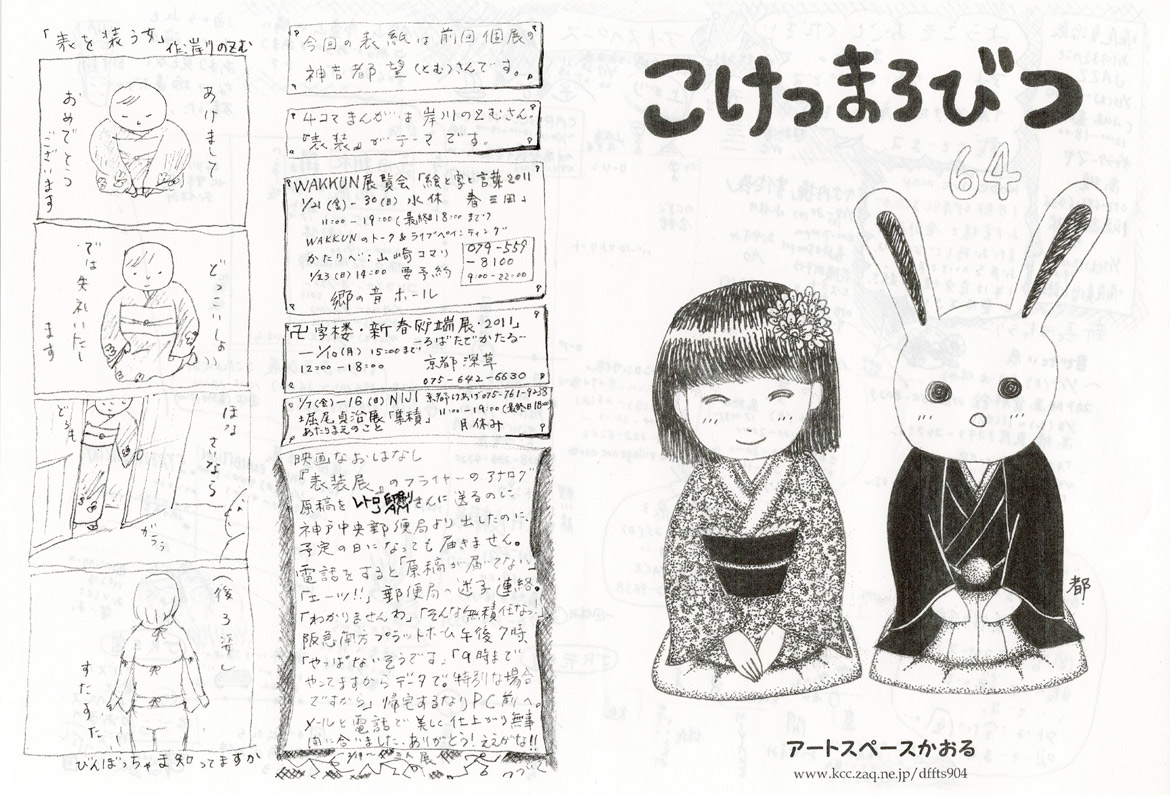 「表を装う女」
作:岸川のぞむ
あけまして
おめでとう
ございます
どっこいしょ
では失礼いたし
ます
ほな
さいなら
どうも
がらっ
(後ろ姿)
すたすた
びんぼっちゃま知ってますか
今回の表紙は前回個展の
神吉都望(とむ)さんです。
4コママンガは岸川のぞむさん。
『表装』がテーマです。
WAKKUN展覧会「絵と字と言葉2011
1/21(金)-30(日) 水休 春三田」
11:00-19:00(最終日18:00まで)
WAKKUNのトーク&ライブペインティング
かたりべ:山崎コマリ
1/23(日)14:00 要予約
079-559
-8100
9:00-22:00
郷の音ホール
卍字楼・新春炉端展・2011」
-ろばたでかたる-
-1/10(月) 15:00まで
12:00-18:00 京都深草
075-642-6630
1/7(金)-16(日) NIJI 京都 075-761-9238
堀尾貞治展「集積」 11:00-19:00(最終日18:00)
あたりまえのこと 月休み
映画なおはなし
『表装展』のフライヤーのアナログ
原稿をレトロ印刷さんに送るのに
神戸中央郵便局より出したのに、
予定の日になっても届きません。
電話をすると「原稿が届てない」
「エーッ!!」郵便局へ迷子連絡。
「わかりませんわ」「そんな無責任なっ!」
阪急南方プラットホーム午後7時
「やっぱないそうです」「9時まで
やってますからデータで。特別な場合
ですから」帰宅するなりPC前へ。
メールと電話で美しく仕上がり無事
間に合いました。ありがとう!ええがな!!
こけっまろびつ
64
都
アートスペースかおる
www.kcc.zaq.ne.jp/dffts904